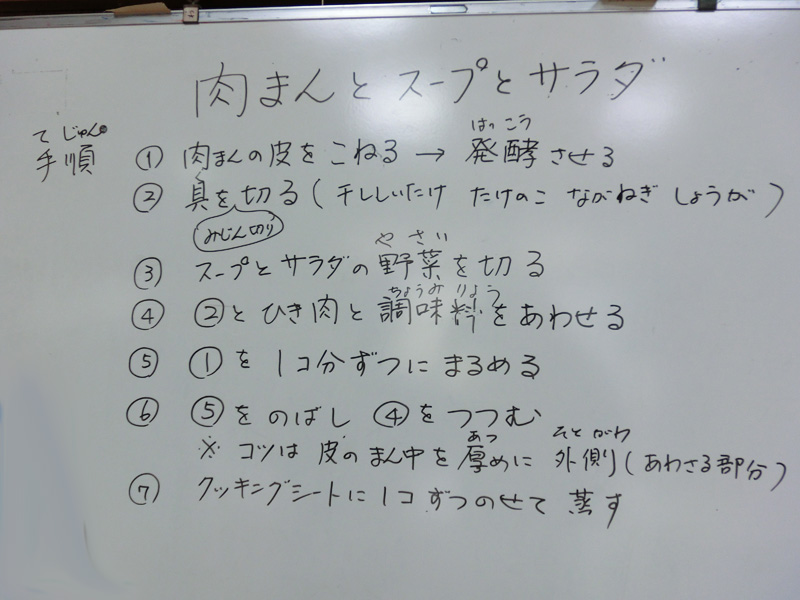 肉まんとスープとサラダ
てじゅん
手順
はっこう
① 肉まんの皮をこねる → 発酵させる
② 具を切る(干ししいたけ たけのこ ながねぎ しょうが)
みじん切り
やさい
③ スープとサラダの野菜を切る
ちょうみりょう
④ ②とひき肉と調味料をあわせる
⑤ ①を1コ分ずつにまるめる
⑥ ⑤をのばし ④をつつむ
あつ そとがわ
※ コツは 皮のまん中を厚めに 外側(あわさる部分)
⑦ クッキングシートに1コずつのせて 蒸す